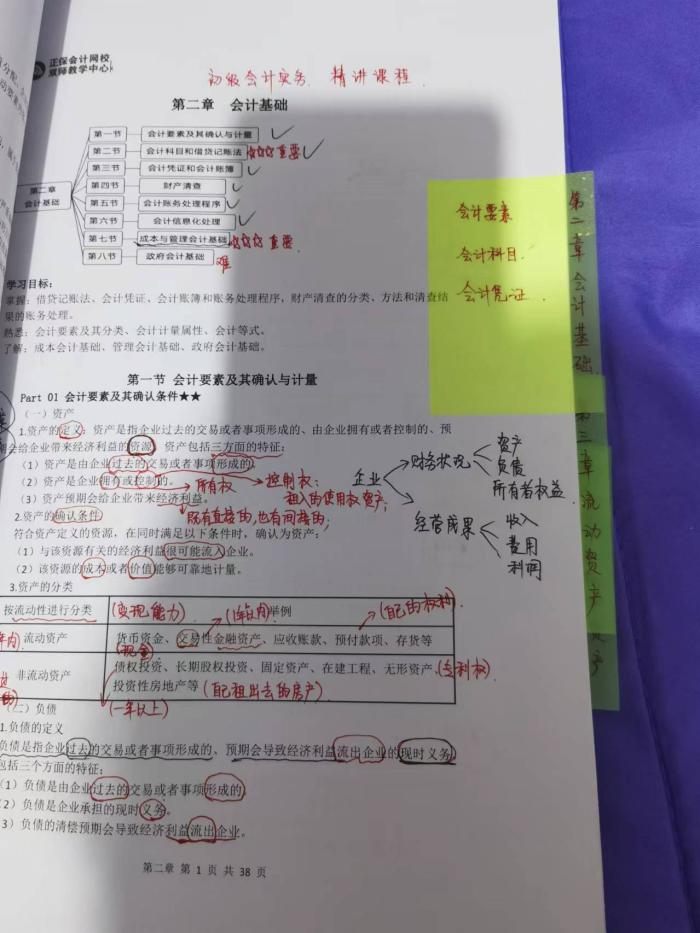 正保会计网校
双师教学中心
初级会计实务 精讲课程
第二章 会计基础
第一节 会计要素及其确认与计量
第二节 会计科目和借贷记账法 ☆☆☆重要
第三节 会计凭证和会计账簿
第四节 财产清查
第五节 会计账务处理程序
第六节 会计信息化处理
第七节 成本与管理会计基础 ☆☆☆ 重要
第八节 政府会计基础 难
第二章
会计基础
会计要素
会计科目
会计凭证
第二章会计基础
第三章流动资产
学习目标:
掌握:借贷记账法、会计凭证、会计账簿和账务处理程序、财产清查的分类、方法和清查结
果的账务处理。
熟悉:会计要素及其分类、会计计量属性、会计等式。
了解:成本会计基础、管理会计基础、政府会计基础。
第一节 会计要素及其确认与计量
Part 01 会计要素及其确认条件★★
(一)资产
1.资产的定义:资产是指企业过去的交易或者事项形成的、由企业拥有或者控制的、预
期会给企业带来经济利益的资源。资产包括三方面的特征:
(1)资产是由企业过去的交易或者事项形成的。
(2)资产是企业拥有或控制的。
所有权
控制权:
租入的使用权资产;
(3)资产预期会给企业带来经济利益。
既有直接的,也有间接的;
企业
财务状况
资产
负债
所有者权益
经营成果
收入
费用
利润
2.资产的确认条件
符合资产定义的资源,在同时满足以下条件时,确认为资产:
(1)与该资源有关的经济利益很可能流入企业。
(2)该资源的成本或者价值能够可靠地计量。
3.资产的分类
按流动性进行分类 (变现能力) (1年内) 举例 (自己的权利)
年内) 流动资产 货币资金、交易性金融资产、应收账款、预付款项、存货等
(现金)
非流动资产 债权投资、长期股权投资、固定资产、在建工程、无形资产、(专利权)
投资性房地产等 (自己租出去的房产)
(一年以上)
(二)负债
1.负债的定义
负债是指企业过去的交易或者事项形成的、预期会导致经济利益流出企业的现时义务。
包括三个方面的特征:
(1)负债是由企业过去的交易或者事项形成的。
(2)负债是企业承担的现时义务。
(3)负债的清偿预期会导致经济利益流出企业。
第二章 第 1 页 共 38 页